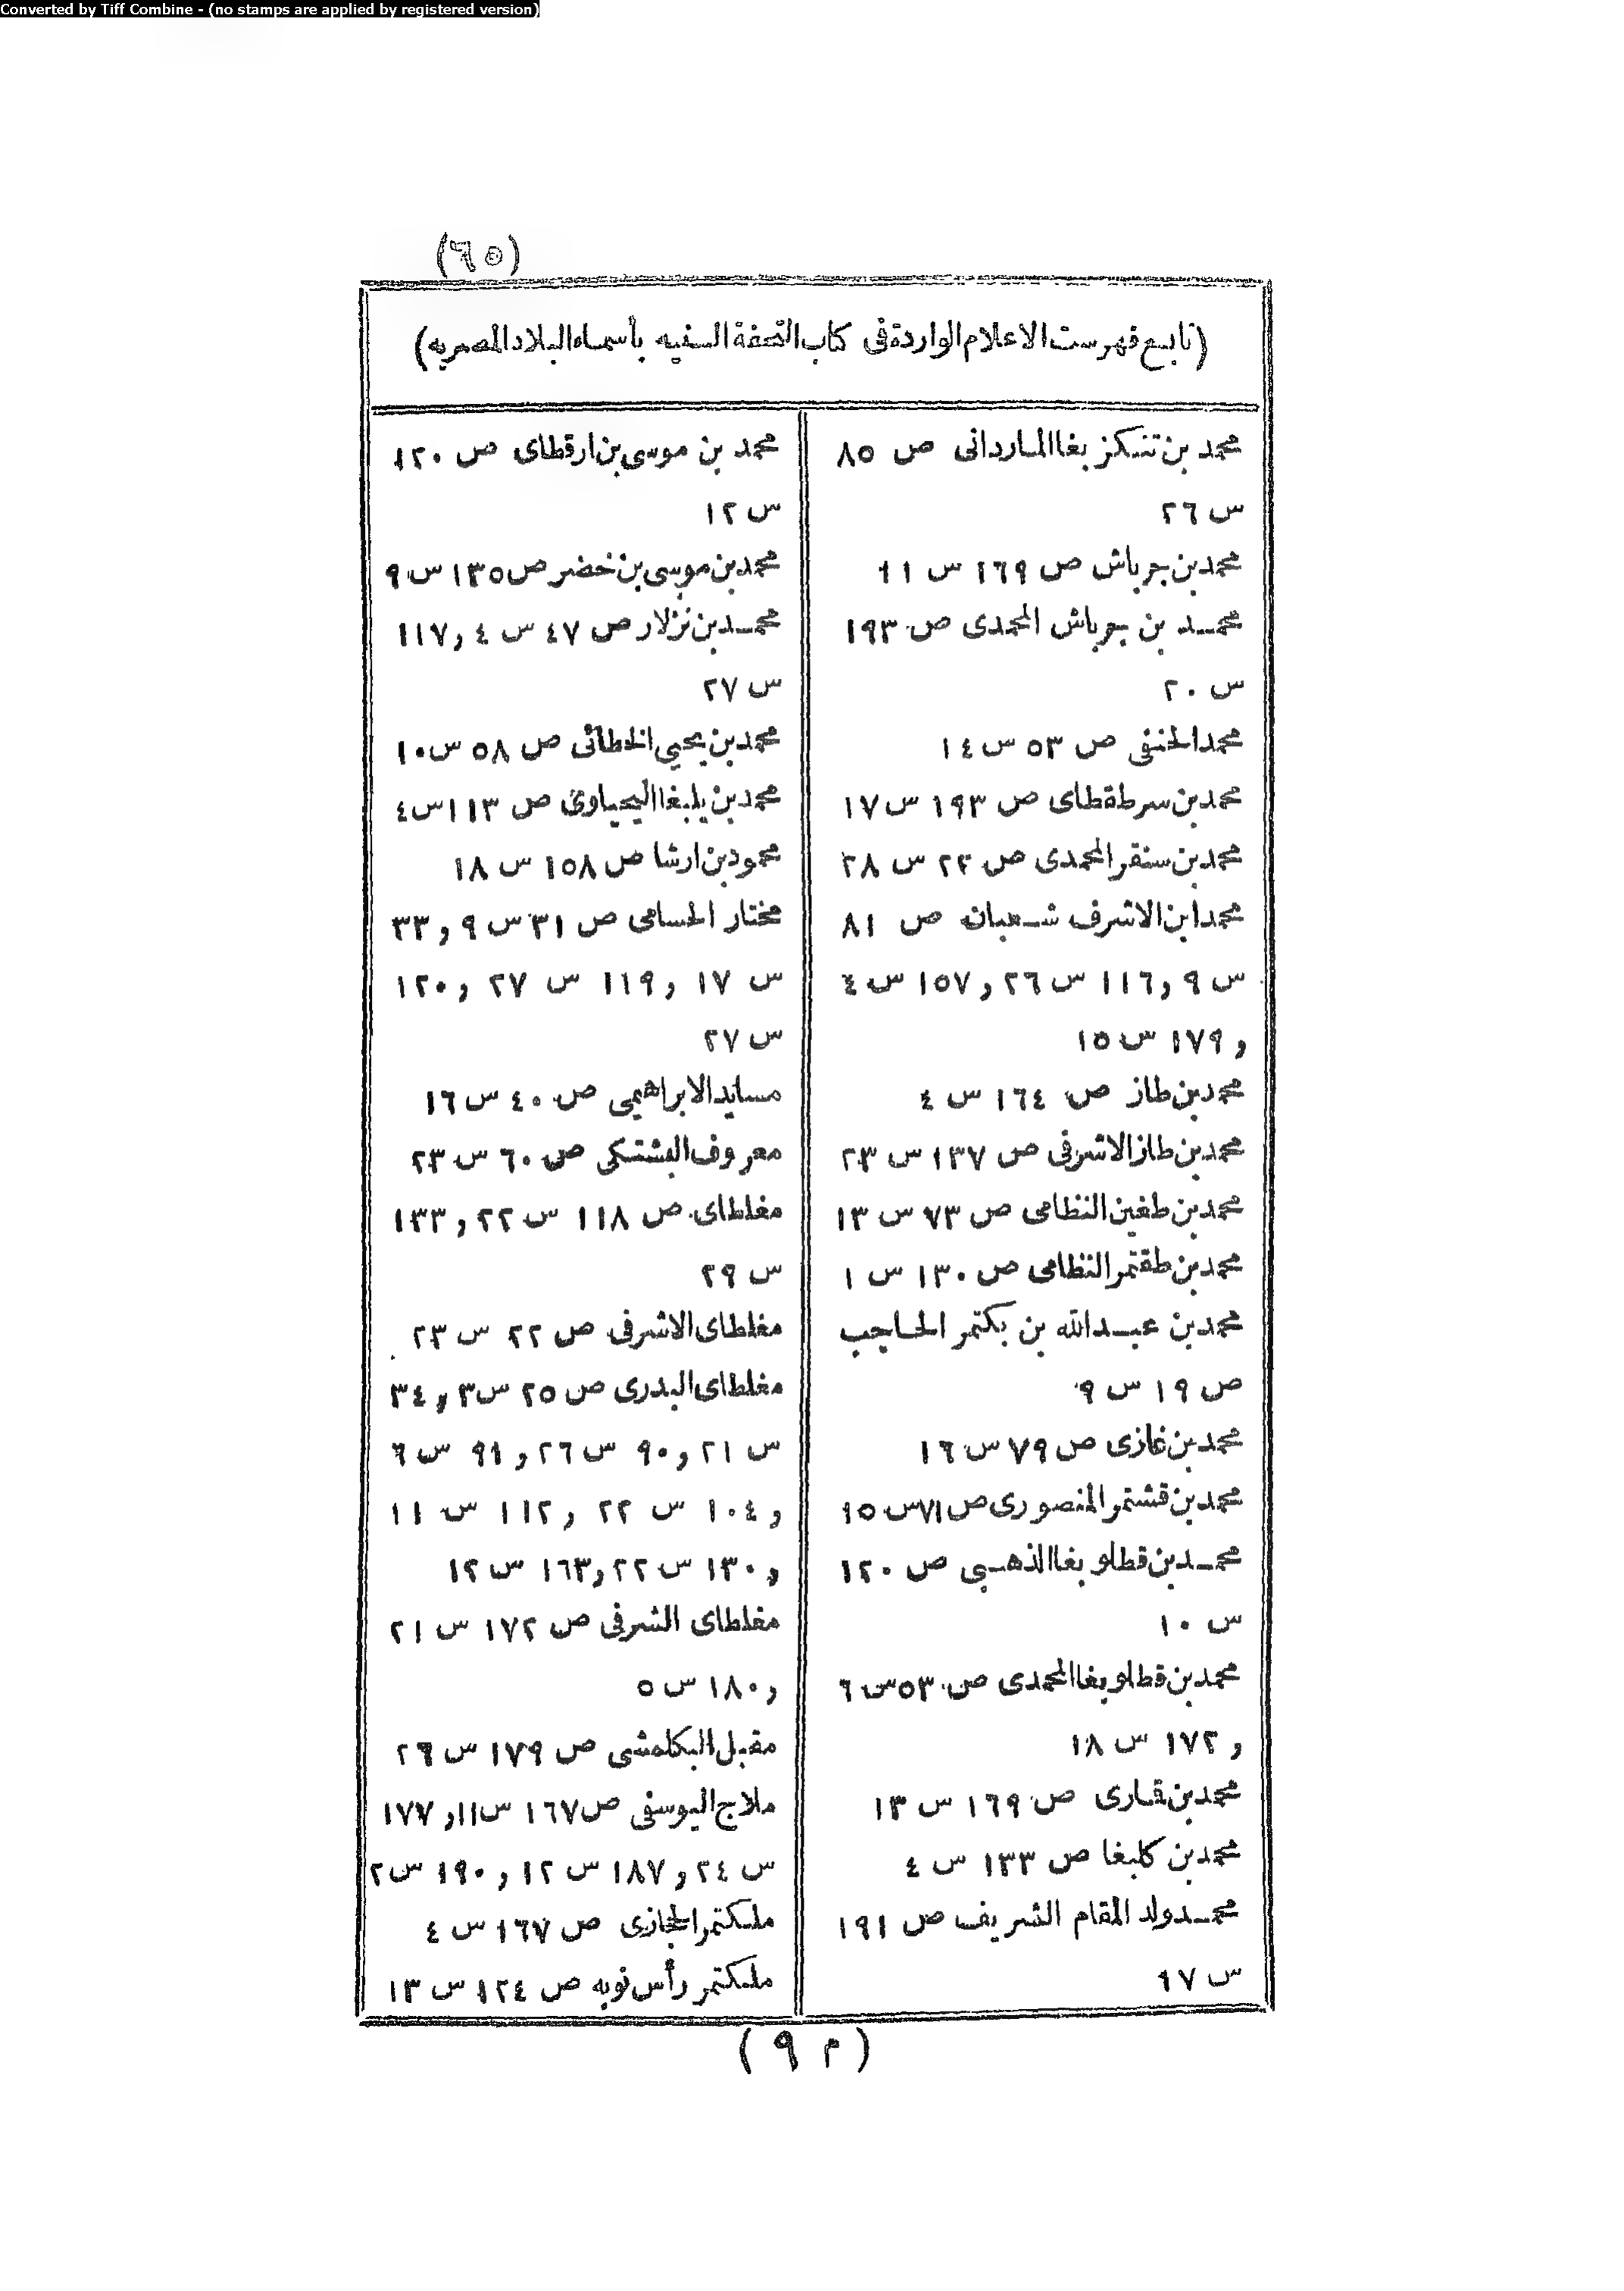 Converted by Tiff Combine - (no stamps are applied by registered version)
(٦٥)
(تابع فهرست الاعلام الواردة فى كتاب التحفة السنيه بأسماء البلاد المصريه)
محمد بن تنكز بغا الماردانى ص ٨٥
س ٢٦
محمد بن جرباش ص ١٦٩ س ١١
محمد بن جرباش المحمدى ص ١٩٣
س ٢٠
محمد الحنفى ص ٥٣ س ١٤
محمد بن سرطقطاى ص ١٩٣ س ١٧
محمد بن سنقر المحمدى ص ٢٤ س ٢٨
محمد ابن الاشرف شعبان ص ٨١
س ٩ و ١١٦ س ٢٦ و ١٥٧ س ٤
و ١٧٩ س ١٥
محمد بن طاز ص ١٦٤ س ٤
محمد بن طاز الاشرفى ص ١٣٧ س ٢٣
محمد بن طغين النظامى ص ٧٣ س ١٣
محمد بن طقتمر النظامى ص ١٣٠ س ١
محمد بن عبد الله بن بكتمر الحاجب
ص ١٩ س ٩
محمد بن غازى ص ٧٩ س ١٦
محمد بن قشتمر المنصورى ص ٧١ س ١٥
محمد بن قطلوبغا الذهبى ص ١٢٠
س ١٠
محمد بن قطلوبغا المحمدى ص ٥٣ س ٦
و ١٧٢ س ١٨
محمد بن قارى ص ١٦٩ س ١٣
محمد بن كلبغا ص ١٣٣ س ٤
محمد ولد المقام الشريف ص ١٩١
س ١٧
محمد بن موسى بن ارقطاى ص ١٢٠
س ١٢
محمد بن موسى بن خضر ص ١٣٥ س ٩
محمد بن نزلار ص ٤٧ س ٤ و ١١٧
س ٢٧
محمد بن يحيى الخطائى ص ٥٨ س ١٠
محمد بن يلبغا اليحياوى ص ١١٣ س ٤
محمود بن ارشا ص ١٥٨ س ١٨
مختار الحسامى ص ٣١ س ٩ و ٣٣
س ١٧ و ١١٩ س ٢٧ و ١٢٠
س ٢٧
مسايد الابراهيمى ص ٤٠ س ١٦
معروف البشتكى ص ٦٠ س ٢٣
مغلطاى ص ١١٨ س ٢٢ و ١٣٣
س ٢٩
مغلطاى الاشرفى ص ٢٢ س ٢٣
مغلطاى البدرى ص ٢٥ س ٣ و ٣٤
س ٢١ و ٩٠ س ٢٦ و ٩١ س ٦
و ١٠٤ س ٢٢ و ١١٢ س ١١
و ١٣٠ س ٢٢ و ١٦٣ س ١٢
مغلطاى الشرفى ص ١٧٢ س ٢١
و ١٨٠ س ٥
مقبل البكلمشى ص ١٧٩ س ٢٦
ملاج اليوسفى ص ١٦٧ س ١١ و ١٧٧
س ٢٤ و ١٨٧ س ١٢ و ١٩٠ س ٢
ملكتمر الحجازى ص ١٦٧ س ٤
ملكتمر رأس نوبه ص ١٢٤ س ١٣
(م ٩)